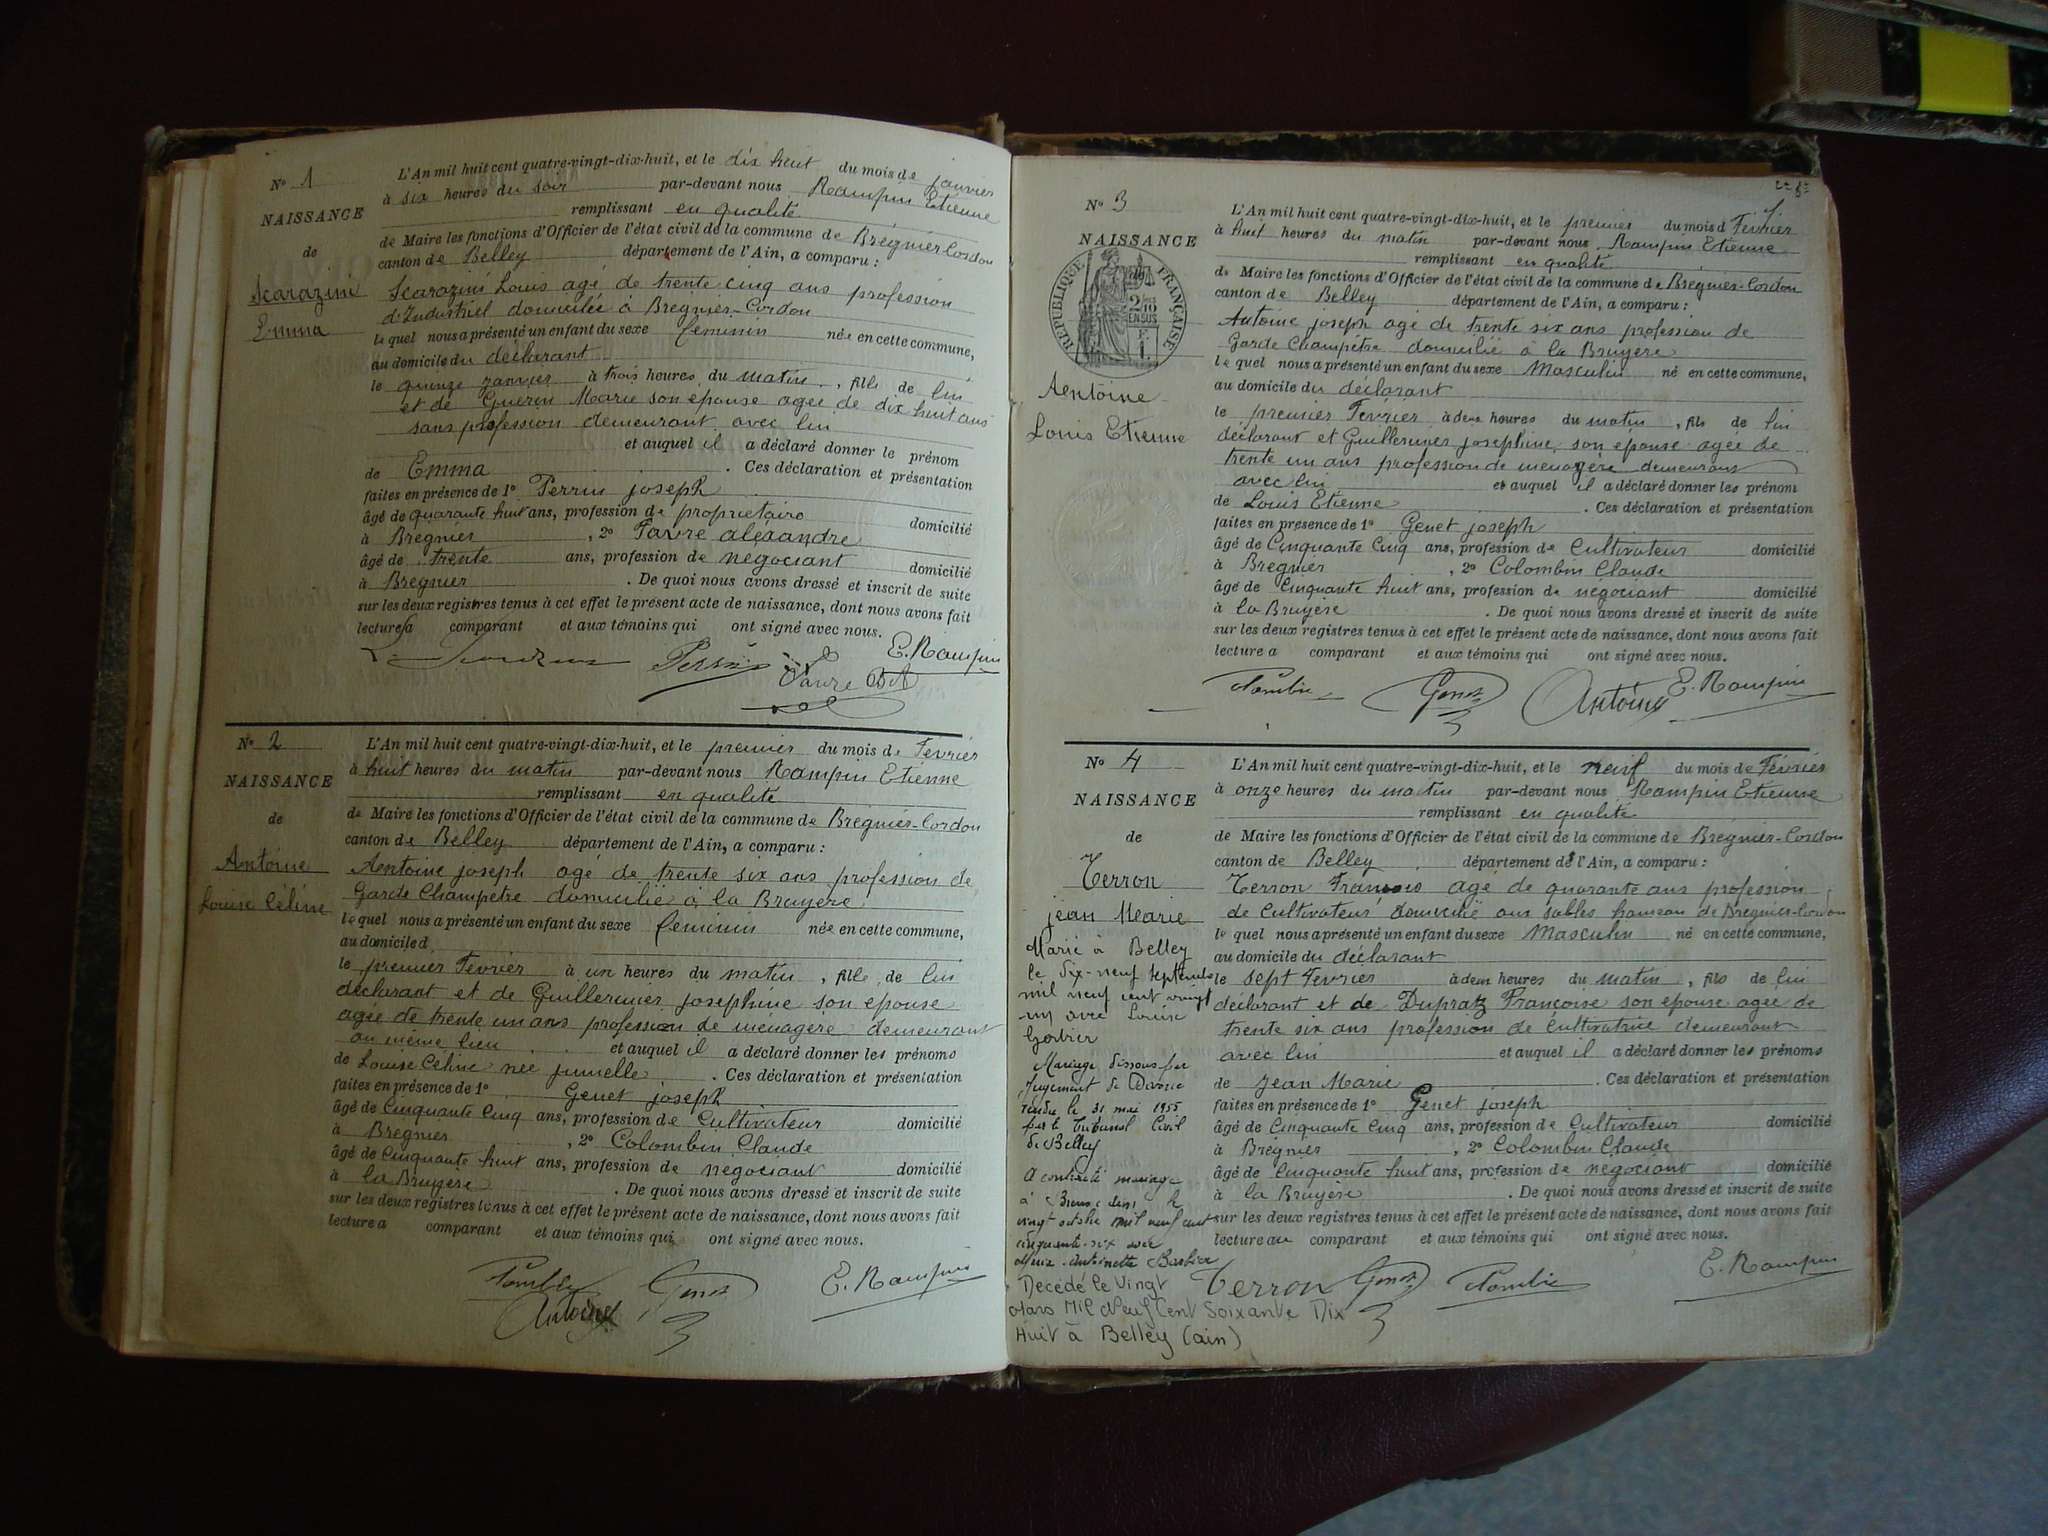 N° 1
NAISSANCE
de
Scarazini
Emma
L'An mil huit cent quatre-vingt-dix-huit, et le dix huit du mois de janvier
à six heures du soir par-devant nous Rampin Etienne
remplissant en qualité
de Maire les fonctions d'Officier de l'état civil de la commune de Brégnier-Cordon
canton de Belley département de l'Ain, a comparu :
Scarazini Louis agé de trente cinq ans profession
d'Industriel domicilié à Bregnier-Cordon
le quel nous a présenté un enfant du sexe feminin née en cette commune,
au domicile du déclarant
le quinze janvier à trois heures du matin, fille de lui
et de Guerin Marie son epouse agée de dix huit ans
sans profession demeurant avec lui
et auquel il a déclaré donner le prénom
de Emma . Ces déclaration et présentation
faites en présence de 1° Perrin joseph
âgé de quarante huit ans, profession de proprietaire domicilié
à Bregnier , 2° Favre aléxandre
âgé de trente ans, profession de négociant domicilié
à Bregnier . De quoi nous avons dressé et inscrit de suite
sur les deux registres tenus à cet effet le présent acte de naissance, dont nous avons fait
lecture a comparant et aux témoins qui ont signé avec nous.
E. Rampin
Favre
N° 2
NAISSANCE
de
Antoine
Louise Céline
L'An mil huit cent quatre-vingt-dix-huit, et le premier du mois de Fevrier
à huit heures du matin par-devant nous Rampin Etienne
remplissant en qualité
de Maire les fonctions d'Officier de l'état civil de la commune de Brégnier-Cordon
canton de Belley département de l'Ain, a comparu :
Antoine joseph agé de trente six ans profession de
Garde Champêtre domicilié à la Bruyere
le quel nous a présenté un enfant du sexe feminin née en cette commune,
au domicile d
le premier Fevrier à un heures du matin, fille de lui
déclarant et de Guillerminer josephine son epouse
agée de trente un ans profession de ménagère demeurant
au même lieu et auquel il a déclaré donner les prénoms
de Louise Céline née jumelle . Ces déclaration et présentation
faites en présence de 1° Genet joseph
âgé de Cinquante Cinq ans, profession de Cultivateur domicilié
à Brégnier , 2° Colombin Claude
âgé de Cinquante huit ans, profession de négociant domicilié
à la Bruyère . De quoi nous avons dressé et inscrit de suite
sur les deux registres tenus à cet effet le présent acte de naissance, dont nous avons fait
lecture a comparant et aux témoins qui ont signé avec nous.
Genet E. Rampin
Antoine
N° 3
NAISSANCE
RÉPUBLIQUE FRANÇAISE
2/10
EN SUS
Antoine
Louis Etienne
L'An mil huit cent quatre-vingt-dix-huit, et le premier du mois d Février
à huit heures du matin par-devant nous Rampin Etienne
remplissant en qualité
de Maire les fonctions d'Officier de l'état civil de la commune de Brégnier-Cordon
canton de Belley département de l'Ain, a comparu :
Antoine joseph agé de trente six ans profession de
Garde Champêtre domicilié à la Bruyere
le quel nous a présenté un enfant du sexe Masculin né en cette commune,
au domicile du déclarant
le premier Fevrier à deux heures du matin, fils de lui
déclarant et Guillerminer josephine son epouse agée de
trente un ans profession de menagère demeurant
avec lui et auquel il a déclaré donner les prénom
de Louis Etienne . Ces déclaration et présentation
faites en présence de 1° Genet joseph
âgé de Cinquante Cinq ans, profession de Cultivateur domicilié
à Bregnier , 2° Colombin Claude
âgé de Cinquante huit ans, profession de négociant domicilié
à la Bruyere . De quoi nous avons dressé et inscrit de suite
sur les deux registres tenus à cet effet le présent acte de naissance, dont nous avons fait
lecture a comparant et aux témoins qui ont signé avec nous.
Genet Antoine E. Rampin
N° 4
NAISSANCE
de
Terron
jean Marie
Marié à Belley
le dix-neuf septembre
mil neuf cent vingt
un avec Louise
Gerbier
Mariage dissous par
Jugement de Divorce
rendu le 31 mai 1955
par le Tribunal Civil
de Belley
A contracté mariage
à le
vingt octobre mil neuf cent
cinquante-six avec
Antoinette Barbier
Décédé le Vingt
Mars Mil Neuf Cent Soixante Dix
Huit à Belley (ain)
L'An mil huit cent quatre-vingt-dix-huit, et le neuf du mois de Février
à onze heures du matin par-devant nous Rampin Etienne
remplissant en qualité
de Maire les fonctions d'Officier de l'état civil de la commune de Brégnier-Cordon
canton de Belley département de l'Ain, a comparu :
Terron François agé de quarante ans profession
de Cultivateur domicilié aux sables hameau de Bregnier-Cordon
le quel nous a présenté un enfant du sexe Masculin né en cette commune,
au domicile du déclarant
le sept Fevrier à deux heures du matin, fils de lui
déclarant et de Dupraz Françoise son epouse agee de
trente six ans profession de Cultivatrice demeurant
avec lui et auquel il a déclaré donner les prénoms
de Jean Marie . Ces déclaration et présentation
faites en présence de 1° Genet joseph
âgé de Cinquante Cinq ans, profession de Cultivateur domicilié
à Brégnier , 2° Colombin Claude
âgé de Cinquante huit ans, profession de négociant domicilié
à la Bruyère . De quoi nous avons dressé et inscrit de suite
sur les deux registres tenus à cet effet le présent acte de naissance, dont nous avons fait
lecture au comparant et aux témoins qui ont signé avec nous.
Terron Genet E. Rampin